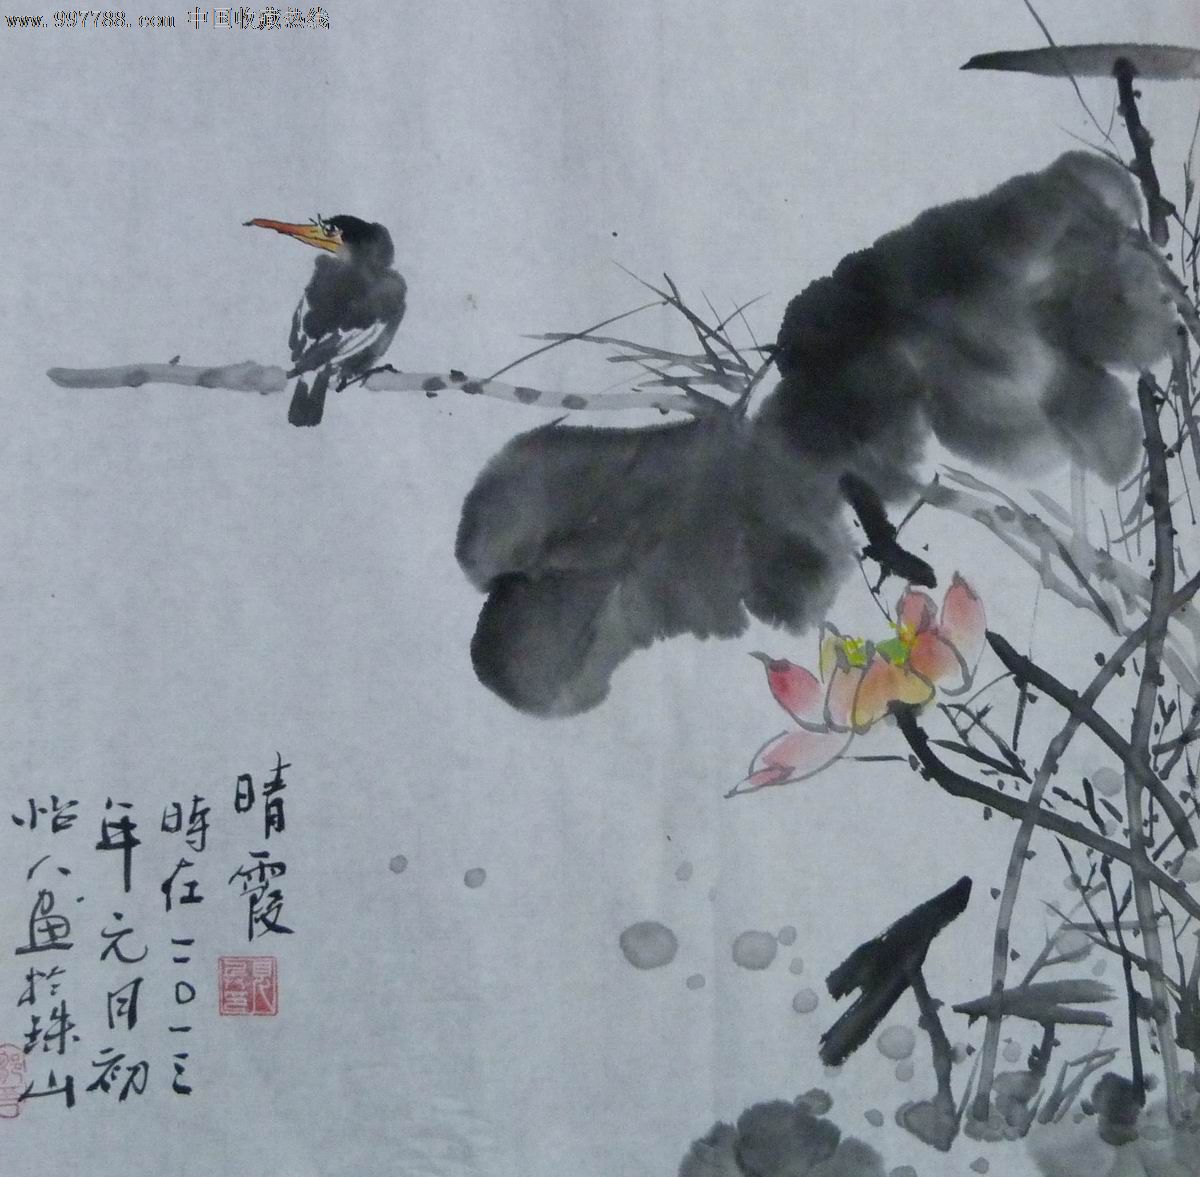 www.997788.com 中国收藏热线
晴霞
時在二〇一三
年元月初
怡人画於珠山